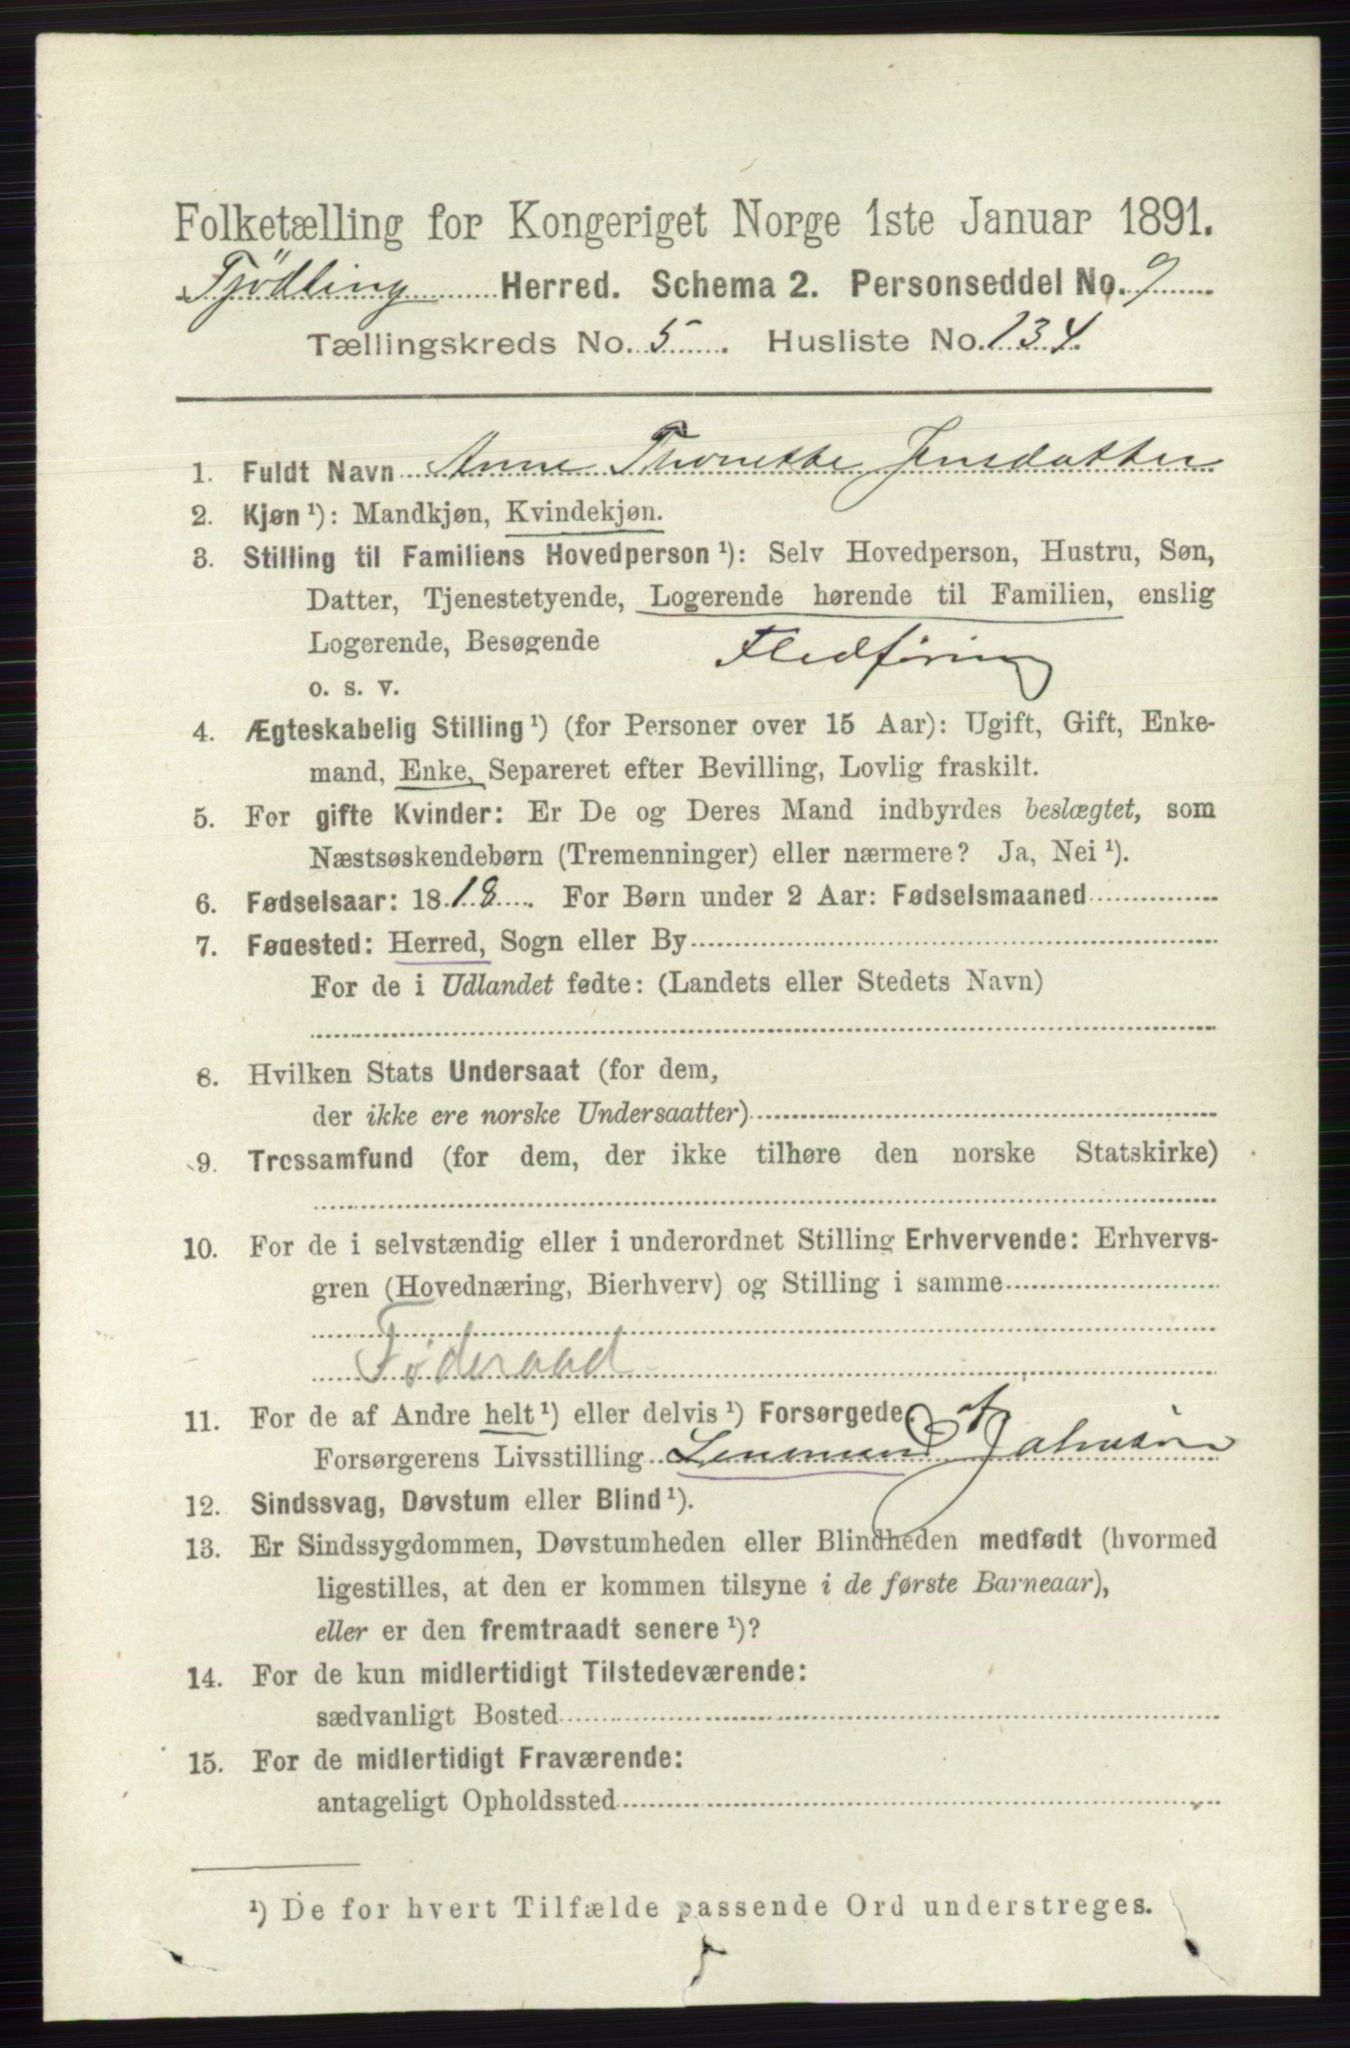 Folketælling for Kongeriget Norge 1ste Januar 1891.
Tjødling Herred. Schema 2. Personseddel No. 9
Tællingskreds No. 5. Husliste No. 134.
1. Fuldt Navn Anne Thonette Jensdatter
2. Kjøn ¹): Mandkjøn, Kvindekjøn.
3. Stilling til Familiens Hovedperson ¹): Selv Hovedperson, Hustru, Søn,
Datter, Tjenestetyende, Logerende hørende til Familien, enslig
Logerende, Besøgende Fledføring
o. s. v.
4. Ægteskabelig Stilling ¹) (for Personer over 15 Aar): Ugift, Gift, Enke-
mand, Enke, Separeret efter Bevilling, Lovlig fraskilt.
5. For gifte Kvinder: Er De og Deres Mand indbyrdes beslægtet, som
Næstsøskendebørn (Tremenninger) eller nærmere? Ja, Nei ¹).
6. Fødselsaar: 1818. For Børn under 2 Aar: Fødselsmaaned
7. Fødested: Herred, Sogn eller By
For de i Udlandet fødte: (Landets eller Stedets Navn)
8. Hvilken Stats Undersaat (for dem,
der ikke ere norske Undersaatter)
9. Trossamfund (for dem, der ikke tilhøre den norske Statskirke)
10. For de i selvstændig eller i underordnet Stilling Erhvervende: Erhvervs-
gren (Hovednæring, Bierhverv) og Stilling i samme
Føderaad
11. For de af Andre helt ¹) eller delvis ¹) Forsørgede.
Forsørgerens Livsstilling af
12. Sindssvag, Døvstum eller Blind ¹).
13. Er Sindssygdommen, Døvstumheden eller Blindheden medfødt (hvormed
ligestilles, at den er kommen tilsyne i de første Barneaar),
eller er den fremtraadt senere ¹)?
14. For de kun midlertidigt Tilstedeværende:
sædvanligt Bosted
15. For de midlertidigt Fraværende:
antageligt Opholdssted
¹) De for hvert Tilfælde passende Ord understreges.